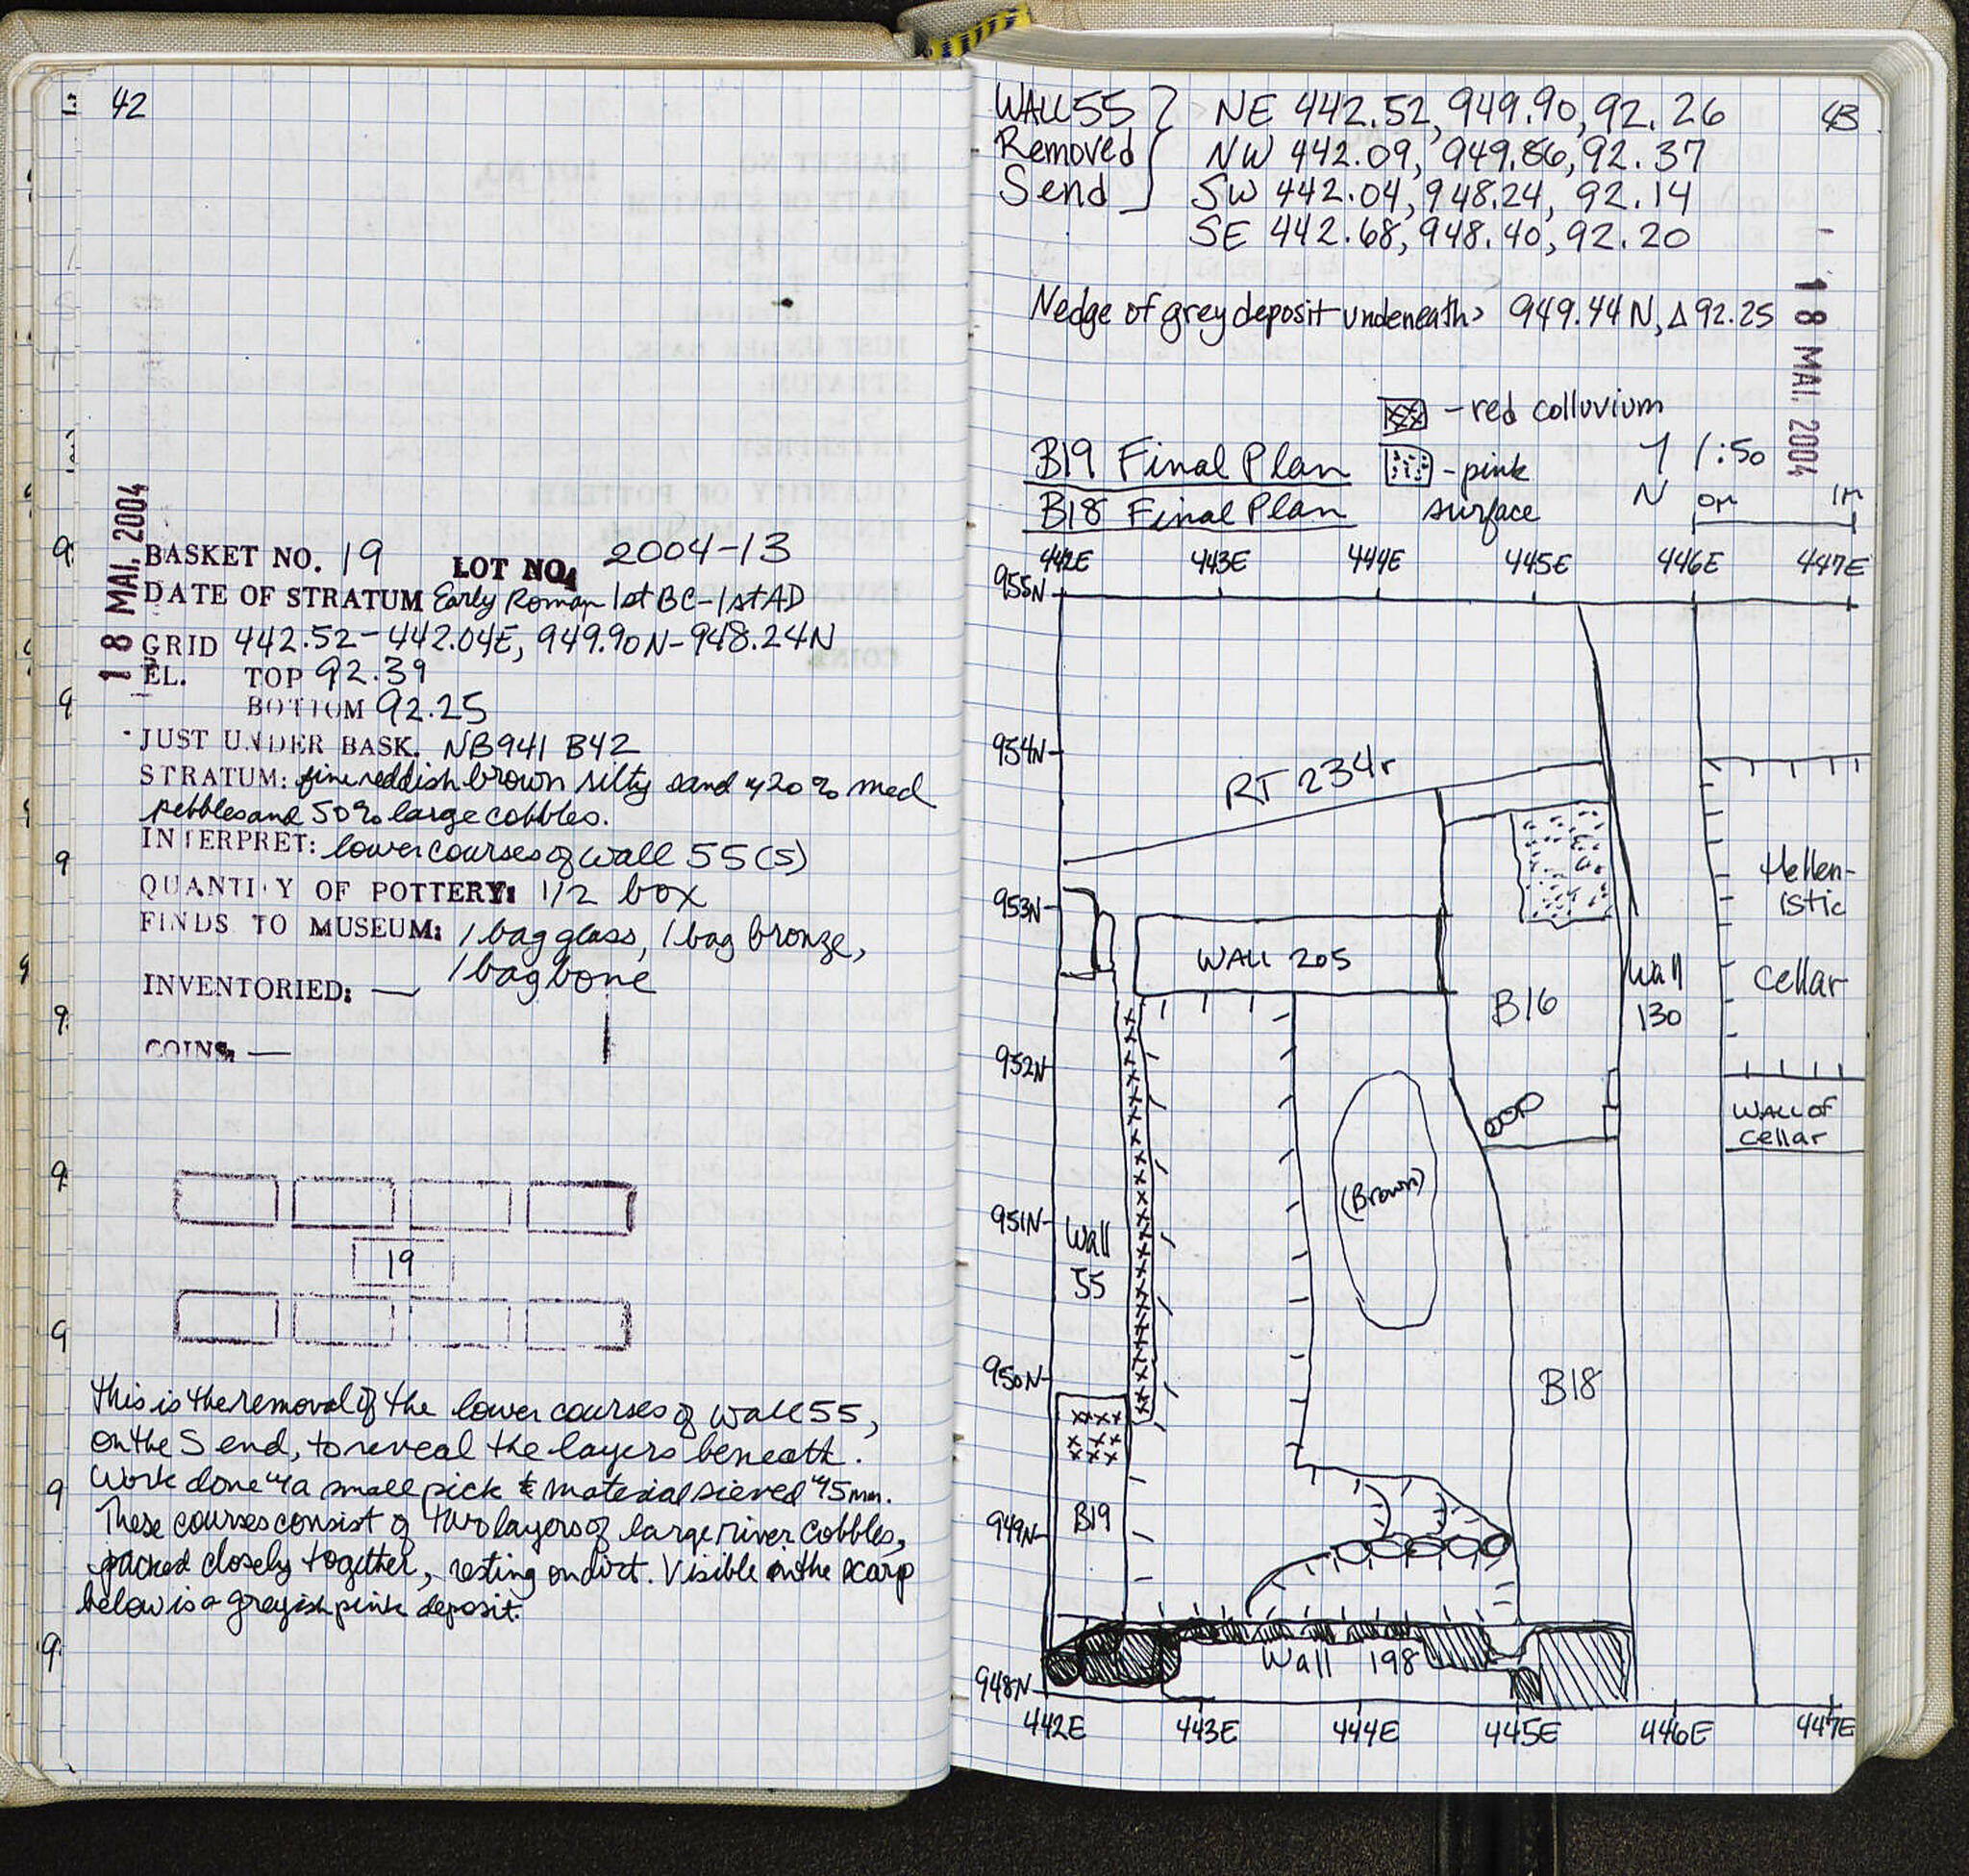 42
18 MAI. 2004
BASKET NO. 19 LOT NO. 2004-13
DATE OF STRATUM Early Roman 1st BC-1st AD
GRID 442.52-442.04E, 949.90N-948.24N
EL. TOP 92.39
BOTTOM 92.25
JUST UNDER BASK. NB941 B42
STRATUM: fine reddish brown silty sand w/ 20% med
pebbles and 50% large cobbles.
INTERPRET: lower courses of wall 55 (S)
QUANTITY OF POTTERY: 1/2 box
FINDS TO MUSEUM: 1 bag glass, 1 bag bronze,
1 bag bone
INVENTORIED: —
COINS —
19
This is the removal of the lower courses of wall 55,
on the S end, to reveal the layers beneath.
Work done w/ a small pick & material sieved w/ 5mm.
These courses consist of two layers of large river cobbles,
packed closely together, resting on dirt. Visible on the scarp
below is a greyish pink deposit.
43
WALL 55 } NE 442.52, 949.90, 92.26
Removed NW 442.09, 949.86, 92.37
S end SW 442.04, 948.24, 92.14
SE 442.68, 948.40, 92.20
N edge of grey deposit underneath > 949.44 N, Δ 92.25
18 MAI. 2004
- red colluvium
B19 Final Plan - pink 1:50
B18 Final Plan surface N 0m 1m
442E 443E 444E 445E 446E 447E
955N
954N
RT 234r
953N
Hellen-
istic
WALL 205
Wall
130
Cellar
B16
952N
WALL OF
cellar
(Brown)
951N
Wall
55
950N
B18
B19
949N
Wall 198
948N
442E 443E 444E 445E 446E 447E